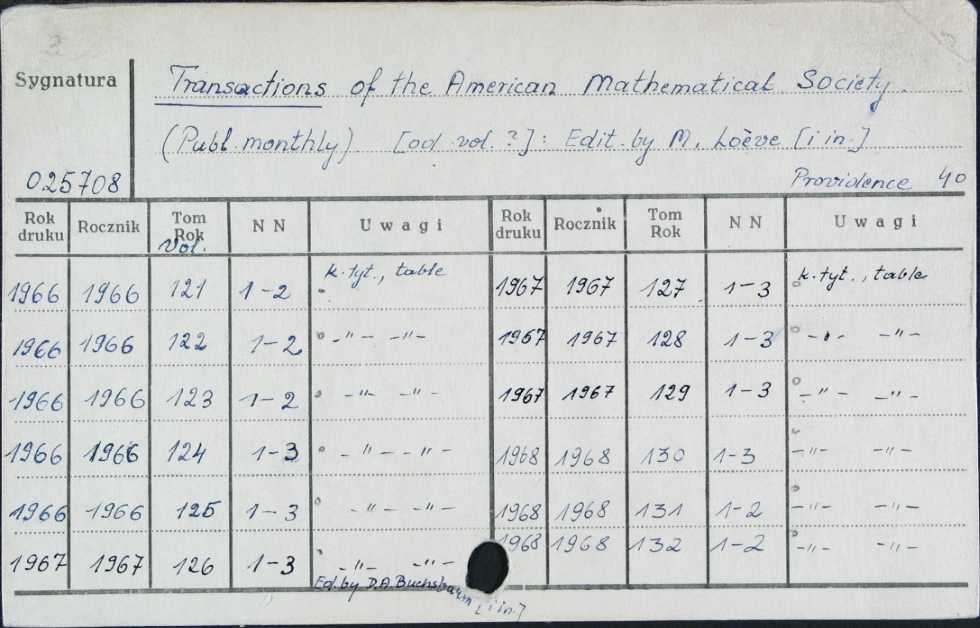 Sygnatura
Transactions of the American Mathematical Society.
(Publ. monthly) [od vol. ?] : Edit. by M. Loève [i in.]
025708
Providence 40
Rok druku Rocznik Tom Rok Vol. N N Uwagi Rok druku Rocznik Tom Rok N N Uwagi
1966 1966 121 1-2 k. tyt., table 1967 1967 127 1-3 k. tyt., table
1966 1966 122 1-2 -"- -"- 1967 1967 128 1-3 -"- -"-
1966 1966 123 1-2 -"- -"- 1967 1967 129 1-3 -"- -"-
1966 1966 124 1-3 -"- -"- 1968 1968 130 1-3 -"- -"-
1966 1966 125 1-3 -"- -"- 1968 1968 131 1-2 -"- -"-
1967 1967 126 1-3 -"- -"- 1968 1968 132 1-2 -"- -"-
Ed. by D.A. Buchsbaum [i in.]